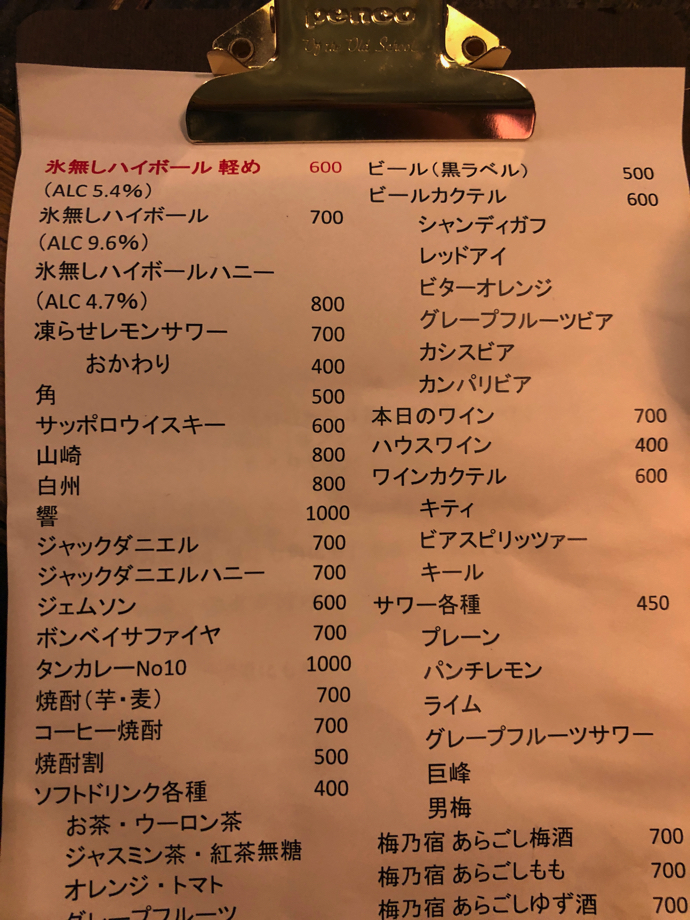 penco
氷無しハイボール 軽め 600
(ALC 5.4%)
氷無しハイボール 700
(ALC 9.6%)
氷無しハイボールハニー
(ALC 4.7%) 800
凍らせレモンサワー 700
おかわり 400
角 500
サッポロウイスキー 600
山崎 800
白州 800
響 1000
ジャックダニエル 700
ジャックダニエルハニー 700
ジェムソン 600
ボンベイサファイヤ 700
タンカレーNo10 1000
焼酎(芋・麦) 700
コーヒー焼酎 700
焼酎割 500
ソフトドリンク各種 400
お茶・ウーロン茶
ジャスミン茶・紅茶無糖
オレンジ・トマト
グレープフルーツ
ビール(黒ラベル) 500
ビールカクテル 600
シャンディガフ
レッドアイ
ビターオレンジ
グレープフルーツビア
カシスビア
カンパリビア
本日のワイン 700
ハウスワイン 400
ワインカクテル 600
キティ
ビアスピリッツァー
キール
サワー各種 450
プレーン
パンチレモン
ライム
グレープフルーツサワー
巨峰
男梅
梅乃宿 あらごし梅酒 700
梅乃宿 あらごしもも 700
梅乃宿 あらごしゆず酒 700